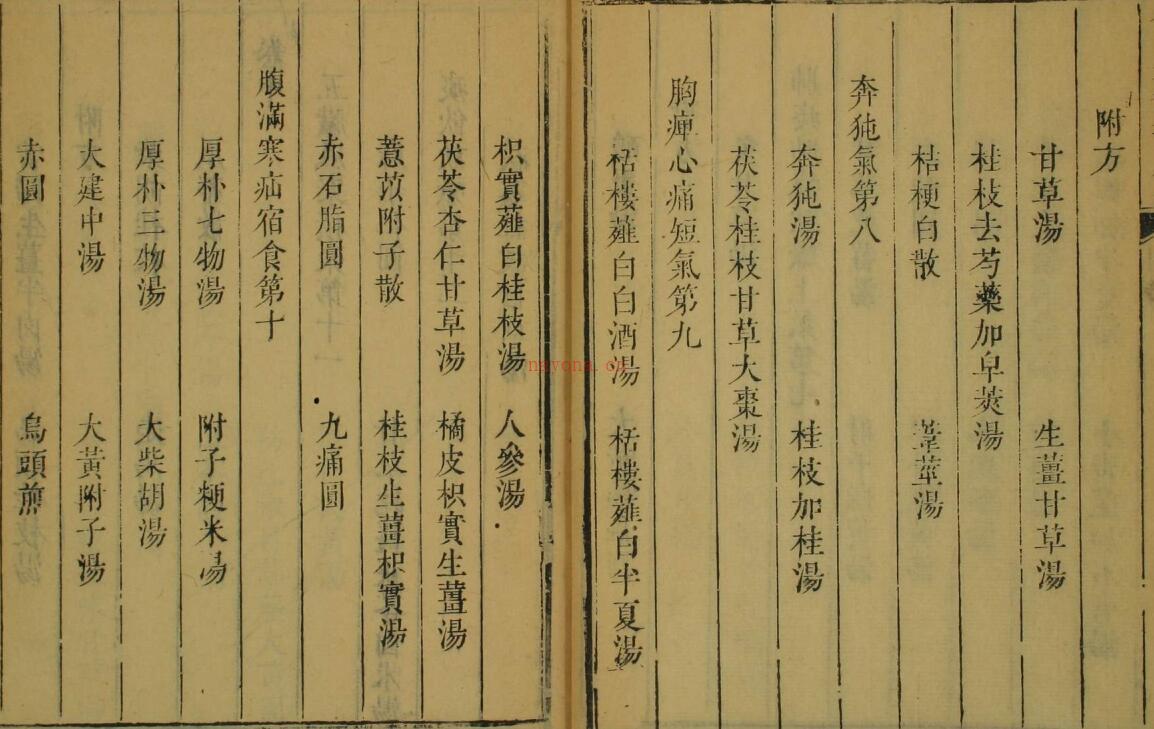 附方
甘草湯 生薑甘草湯
桂枝去芍藥加皁莢湯
桔梗白散 葦莖湯
奔㹠氣第八
奔㹠湯 桂枝加桂湯
茯苓桂枝甘草大棗湯
胸痺心痛短氣第九
栝樓薤白白酒湯 栝樓薤白半夏湯
枳實薤白桂枝湯 人參湯
茯苓杏仁甘草湯 橘皮枳實生薑湯
薏苡附子散 桂枝生薑枳實湯
赤石脂圓 九痛圓
腹滿寒疝宿食第十
厚朴七物湯 附子粳米湯
厚朴三物湯 大柴胡湯
大建中湯 大黃附子湯
赤圓 烏頭煎
nayona.cn